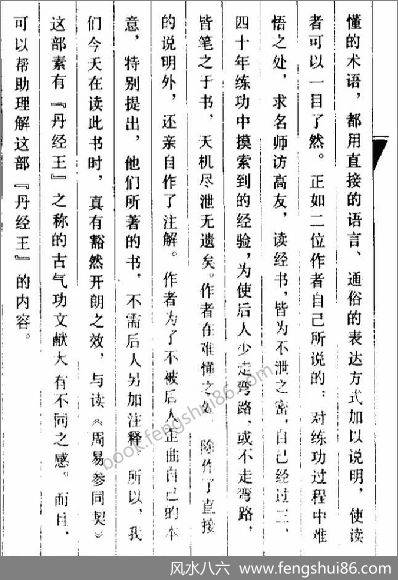 懂的术语，都用直接的语言、通俗的表达方式加以说明，使读
者可以一目了然。正如二位作者自己所说的：对练功过程中难
悟之处，求名师访高友，读经书，皆为不泄之密，自己经过三、
四十年练功中摸索到的经验，为使后人少走弯路，或不走弯路，
皆笔之于书，天机尽泄无遗矣。作者在难懂之处，除作了直接
的说明外，还亲自作了注解。作者为了不被后人歪曲自己的本
意，特别提出，他们所著的书，不需后人另加注释。所以，我
们今天在读此书时，真有豁然开朗之效，与读《周易参同契》
这部素有『丹经王』之称的古气功文献大有不同之感。而且，
可以帮助理解这部『丹经王』的内容。
book.fengshui86.com
风水八六 - www.fengshui86.com